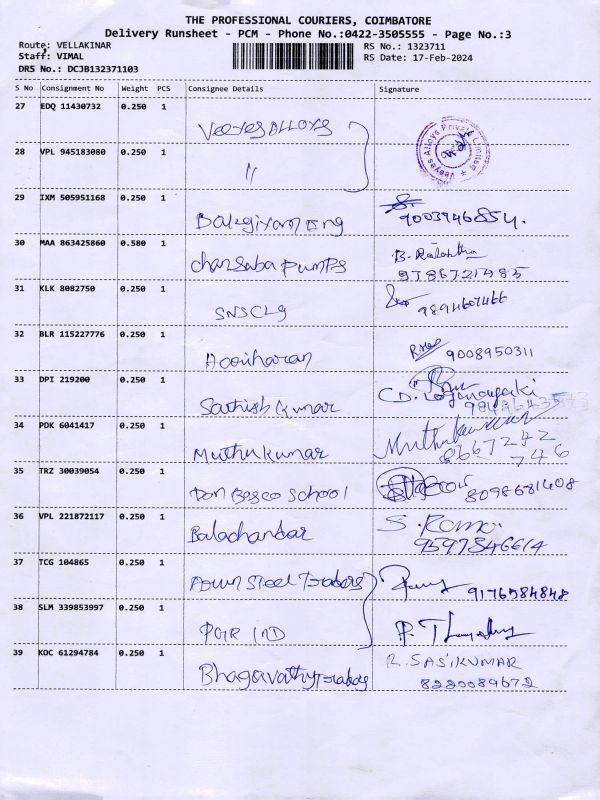 THE PROFESSIONAL COURIERS, COIMBATORE
Delivery Runsheet - PCM - Phone No.:0422-3505555 - Page No.:3
Route: VELLAKINAR
RS No.: 1323711
Staff: VIMAL
RS Date: 17-Feb-2024
DRS No.: DCJB132371103
S No Consignment No Weight PCS Consignee Details Signature
27 EDQ 11430732 0.250 1
Veeyes Alloys
Veeyes Alloys Private Limited
28 VPL 945183080 0.250 1
"
29 IXM 505951168 0.250 1
Eng
9003946854.
30 MAA 863425860 0.580 1
Pumps
B.
9786721485
31 KLK 8082750 0.250 1
SNSCLG
32 BLR 115227776 0.250 1
9008950311
33 DPI 219200 0.250 1
Sathish Kumar
C.D. Loganayaki
34 PDK 6041417 0.250 1
Muthukumar
Muthukumar
8667242
746
35 TRZ 30039054 0.250 1
Don Bosco School
8098681408
36 VPL 221872117 0.250 1
Balachandar
S.
9597846614
37 TCG 104865 0.250 1
Steel Traders
9176584848
38 SLM 339853997 0.250 1
PGR IND
P.
39 KOC 61294784 0.250 1
Bhagavathy Traders
R. SASIKUMAR
8220089672